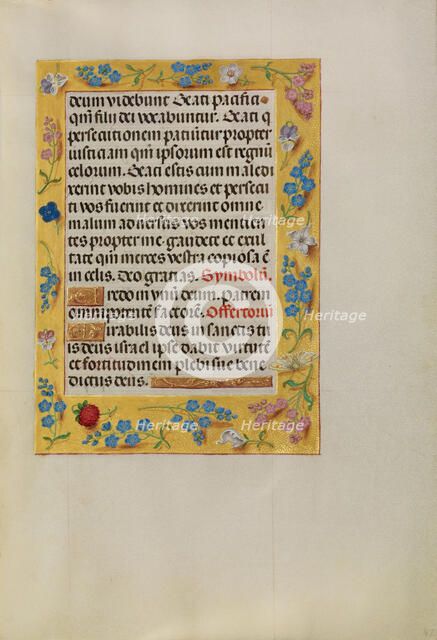 deum videbunt. Beati pacifici
qm̄ filii dei vocabuntur. Beati q
persecutionem patiūtur propter
iusticiam qm̄ ipsorum est regnū
celorum. Beati estis cum maledi
xerint vobis homines et persecuti
vos fuerint et dixerint omne
malum adversus vos mencien
tes propter me. gaudete et exul
tate qm̄ merces vestra copiosa ē
in celis. Deo gratias. Symbolū.
Credo in vnū deum. Patrem
omnipotentē factorē. Offertoriū
Mirabilis deus in sanctis su
is deus israel ipse dabit virtutē
et fortitudinem plebi sue bene
dictus deus.
Heritage
Heritage
Heritage
Heritage
Heritage
Heritage
Heritage